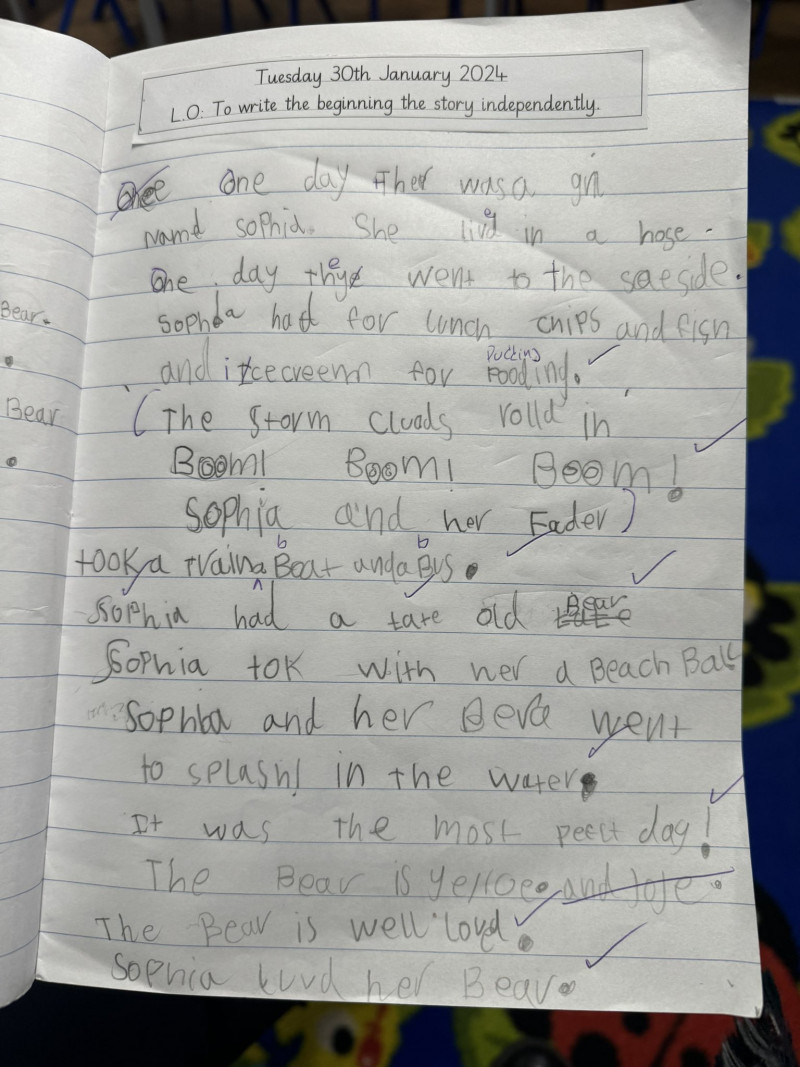 Tuesday 30th January 2024
L.O: To write the beginning the story independently.
One day Ther was a gril
Namd Sophia. She livd in a hose.
One day they went to the saeside.
Sophia had for lunch chips and fish
and icecreem for Fooding.
Pudding
(The Storm Cluods rolld in
Boom! Boom! Boom!
Sophia and her Fader)
took a traina Boat anda Bus.
b b
Sophia had a tate old Bear
Sophia tok with her a Beach Ball
Sophia and her Bera went
to splash! in the water.
It was the most peect day!
The Bear is yelloe. and
The Bear is well lovd.
Sophia luvd her Bear.
Bear.
Bear